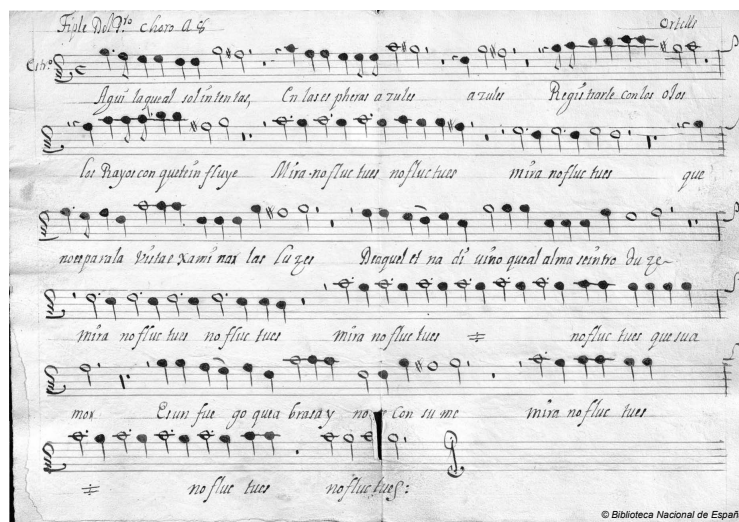 Tiple Del 1º choro A 8 Ortells
Estº
Aqui la que al sol intentas, En las espheras azules azules Registrarle con los ojos
los Rayos con que te in fluye Mira no fluc tues no fluc tues mira no fluc tues que
no es para la vista exa mi nar las lu zes De aquel et na di uino que al alma se intro du ze
mira no fluc tues no fluc tues mira no fluc tues no fluc tues que su a
mor Es un fue go que a brasa y no Con su me mira no fluc tues
no fluc tues no fluc tues:
© Biblioteca Nacional de Españ